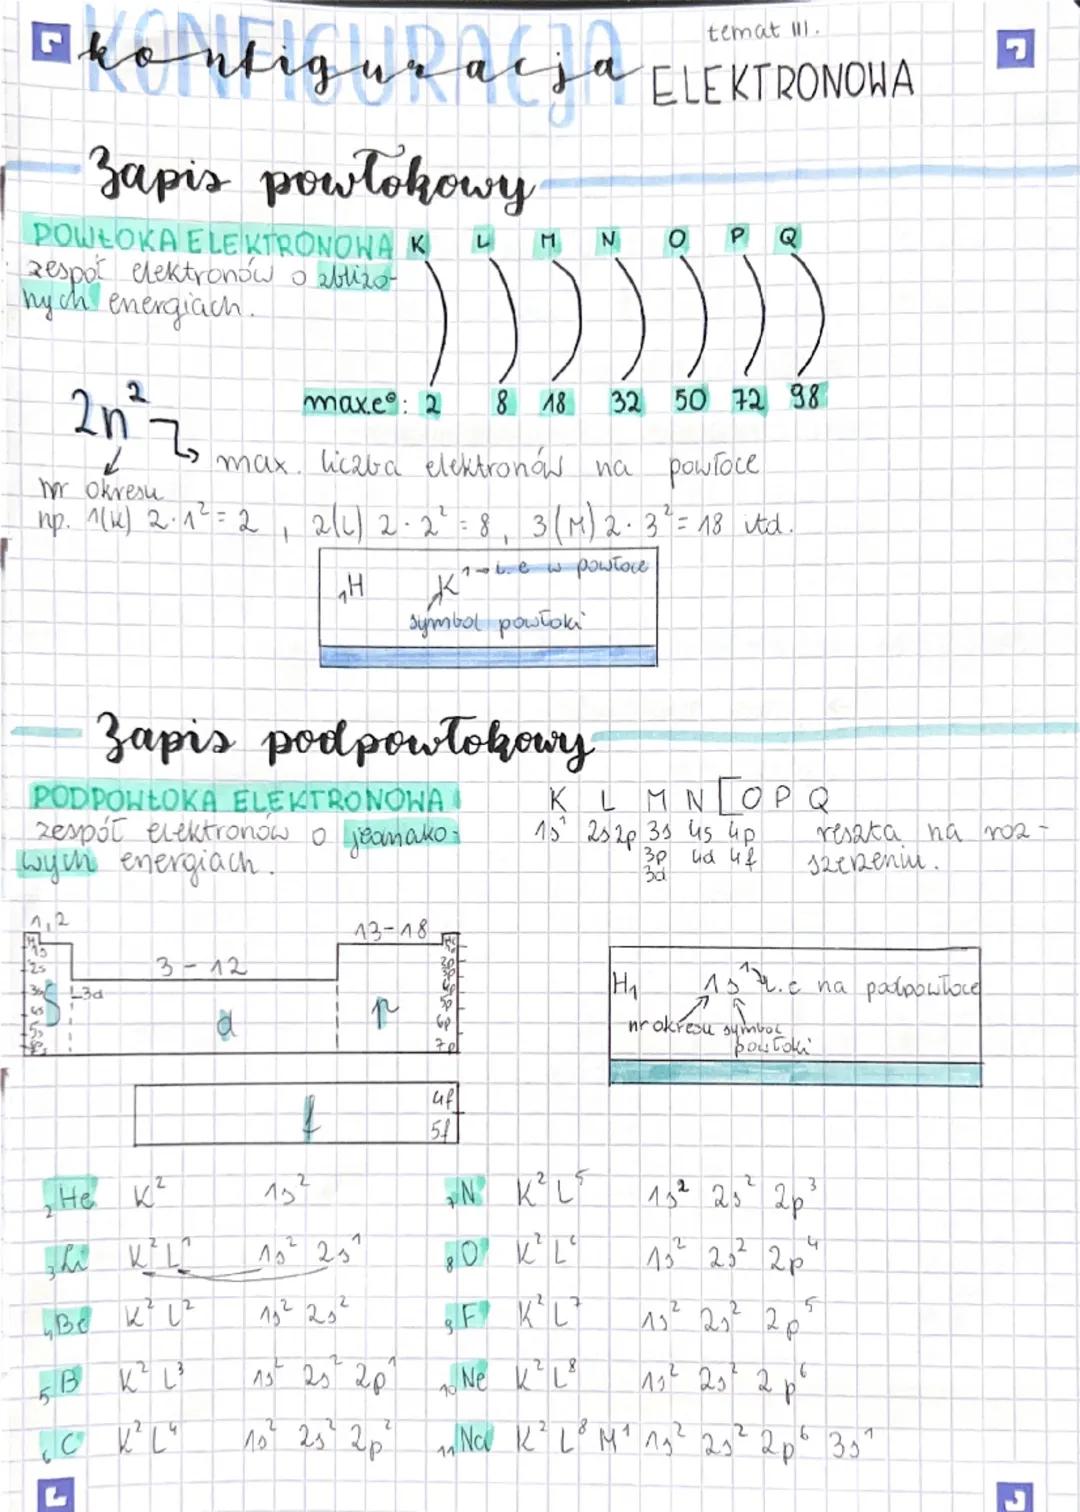 temat III.
KONFIGURACJA
konfiguracja ELEKTRONOWA
Zapis powłokowy
POWŁOKA ELEKTRONOWA K L M N O P Q
zespół elektronów o zbliżo-
nych energiach.
max e⁰: 2 8 18 32 50 72 98
2n²
max. liczba elektronów na powłoce
nr okresu
np. 1(K) 2·1² = 2, 2(L) 2·2² = 8, 3(M) 2·3² = 18 itd.
₁H K¹ → l. e w powłoce
symbol powłoki
Zapis podpowłokowy
PODPOWŁOKA ELEKTRONOWA
zespół elektronów o jednako-
wych energiach.
K L M N [O P Q
1s¹ 2s 2p 3s 4s 4p reszta na roz-
3p 4d 4f szerzeniu.
3d
1,2 13-18
3-12
1s
2s 2p
3s 3d 3p
4s 4p
5s 5p
6p
7p
s d p
H₁ 1s¹ l. e na podpowłoce
nr okresu symbol
powłoki
f 4f
5f
₂He K² 1s²
₃Li K² L¹ 1s² 2s¹
₄Be K² L² 1s² 2s²
₅B K² L³ 1s² 2s² 2p¹
₆C K² L⁴ 1s² 2s² 2p²
₇N K² L⁵ 1s² 2s² 2p³
₈O K² L⁶ 1s² 2s² 2p⁴
₉F K² L⁷ 1s² 2s² 2p⁵
₁₀Ne K² L⁸ 1s² 2s² 2p⁶
₁₁Na K² L⁸ M¹ 1s² 2s² 2p⁶ 3s¹